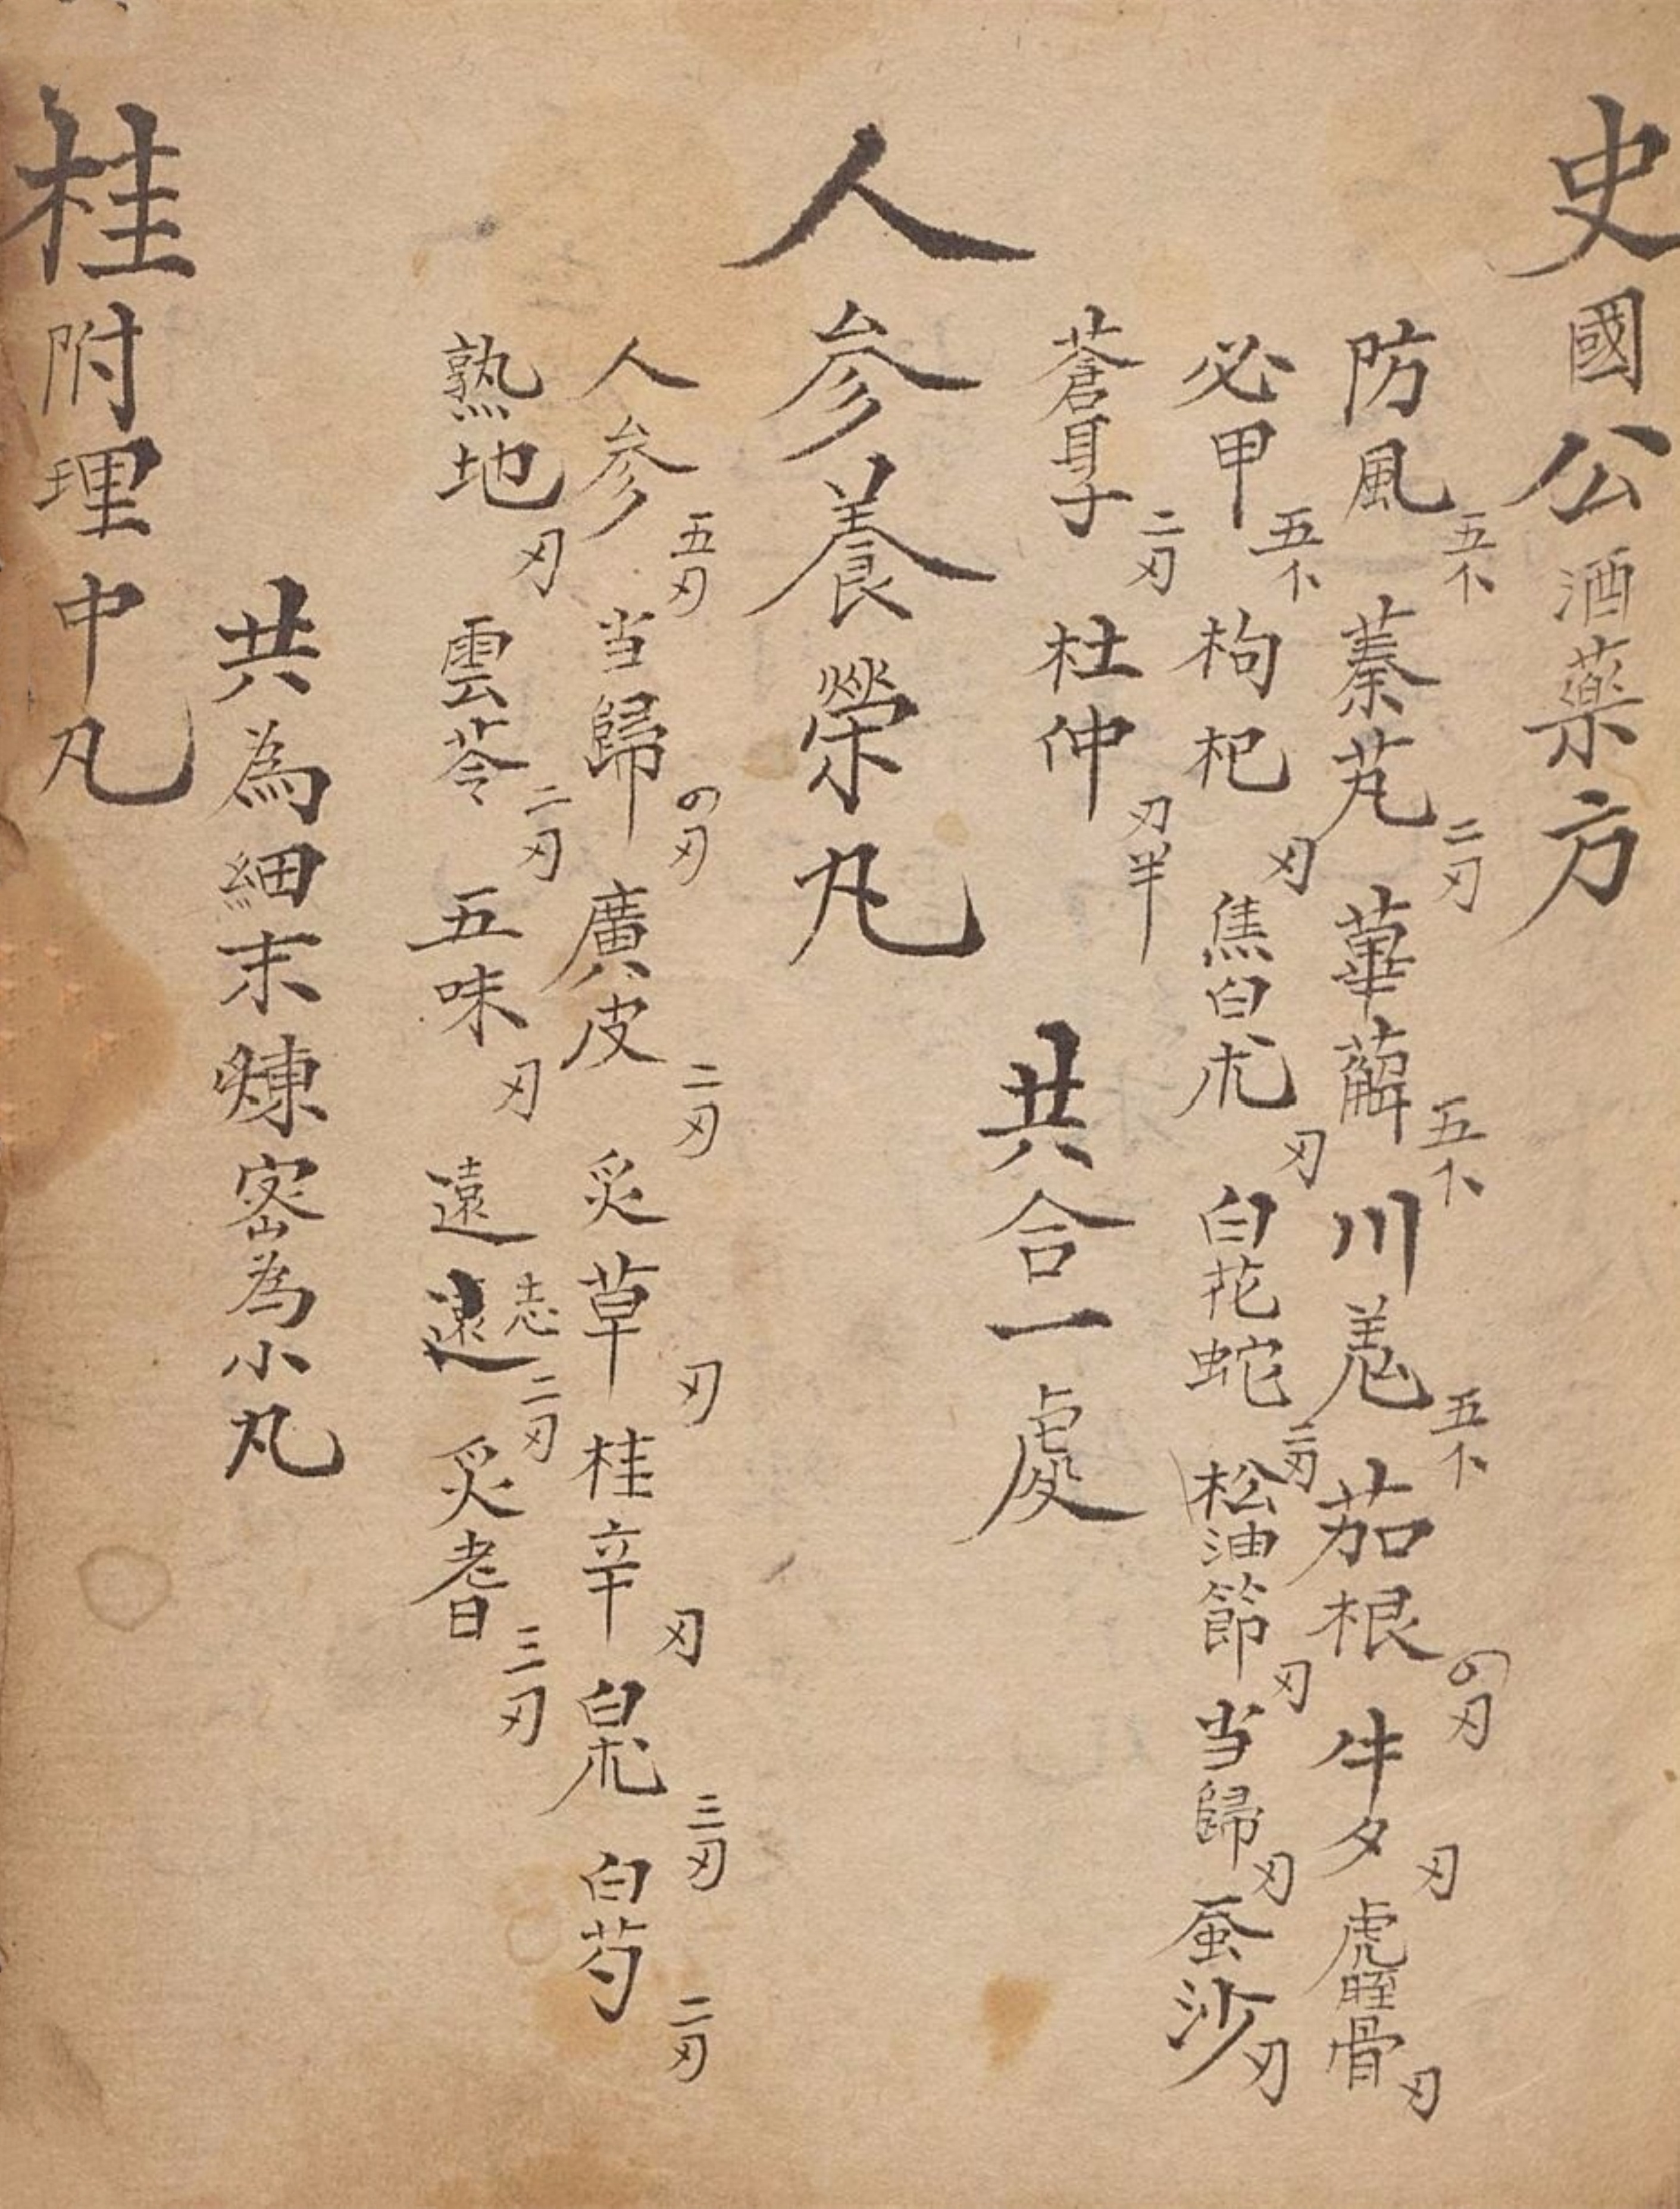 史國公酒藥方
防風五卜 蓁芃二刃 萆薢五卜 川羗五卜 茄根の刃 牛夕刃 虎脛骨刃
必甲五卜 枸杞刃 焦白朮刃 白花蛇二刃 松油節刃 当歸刃 蚕沙刃
蒼耳子二刃 杜仲刃半 共合一處
人參養榮丸
人參五刃 当歸の刃 廣皮二刃 炙草刃 桂辛刃 白朮三刃 白芍二刃
熟地刃 雲苓二刃 五味刃 遠志二刃 炙耆三刃
共為細末煉密為小丸
桂附理中丸